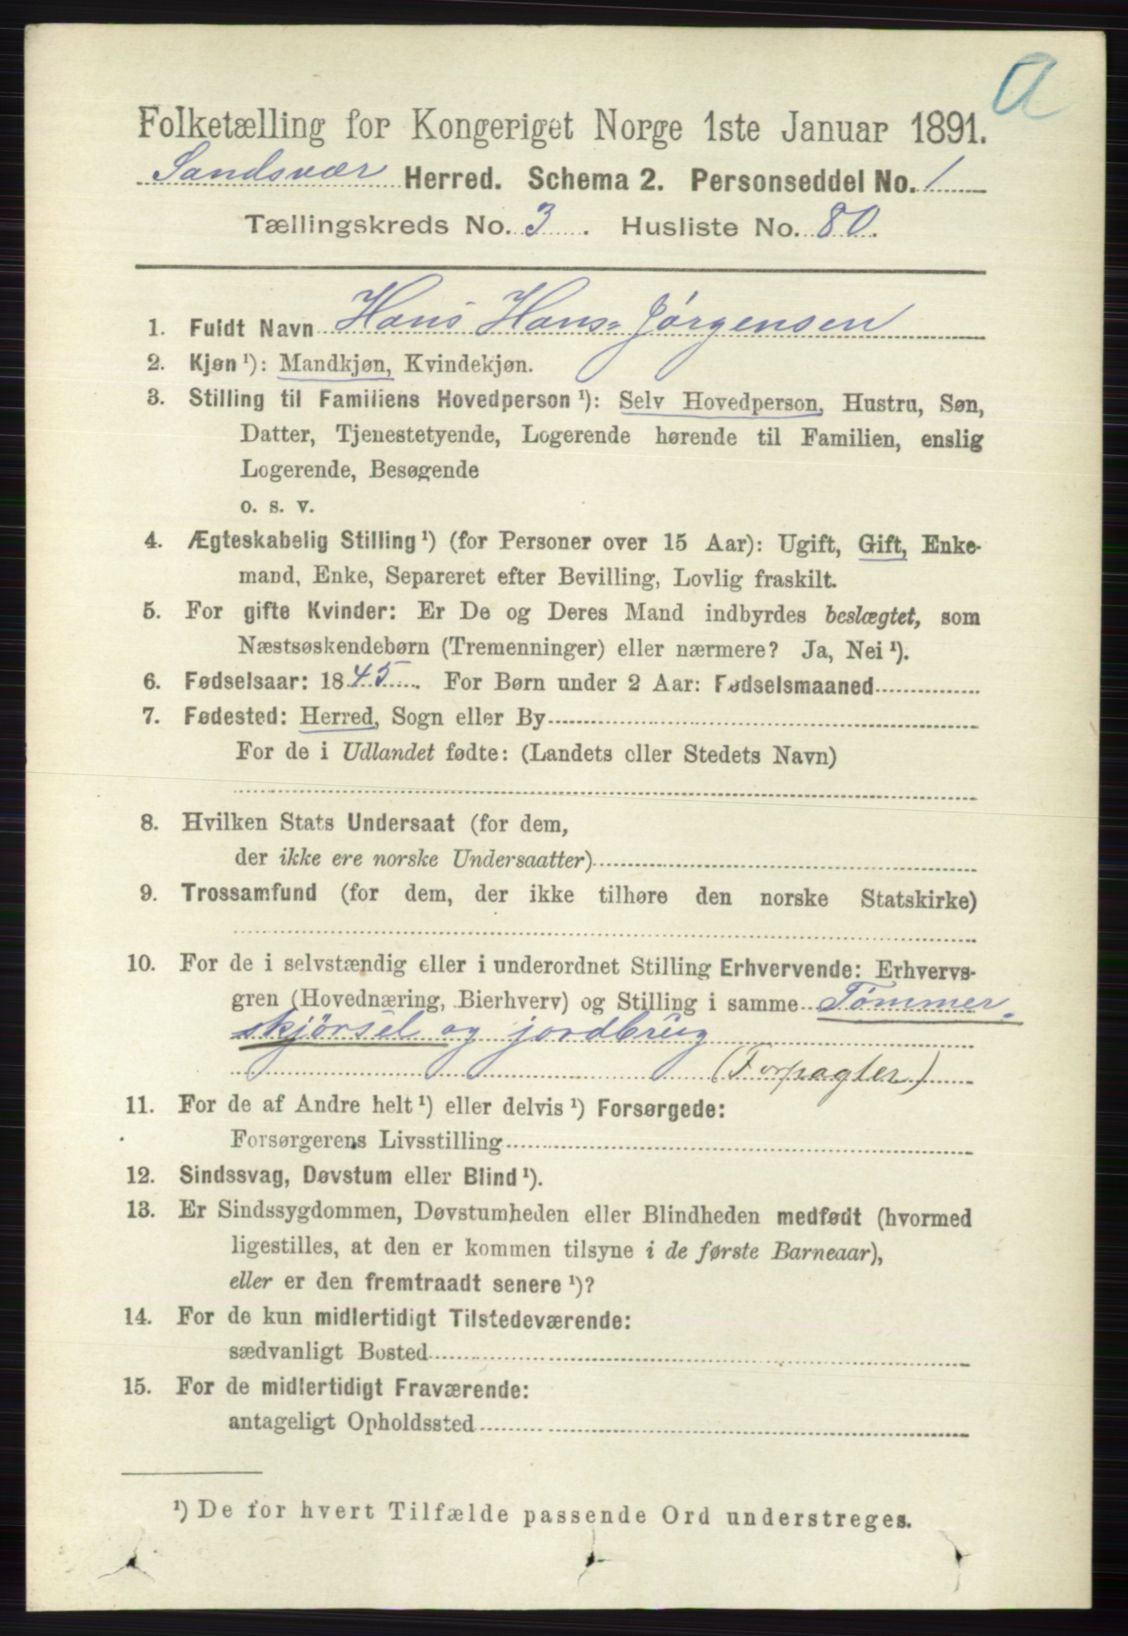 a
Folketælling for Kongeriget Norge 1ste Januar 1891.
Sandsvær Herred. Schema 2. Personseddel No. 1
Tællingskreds No. 3. Husliste No. 80.
1. Fuldt Navn Hans Hans= Jørgensen
2. Kjøn ¹): Mandkjøn, Kvindekjøn.
3. Stilling til Familiens Hovedperson ¹): Selv Hovedperson, Hustru, Søn,
Datter, Tjenestetyende, Logerende hørende til Familien, enslig
Logerende, Besøgende
o. s. v.
4. Ægteskabelig Stilling ¹) (for Personer over 15 Aar): Ugift, Gift, Enke-
mand, Enke, Separeret efter Bevilling, Lovlig fraskilt.
5. For gifte Kvinder: Er De og Deres Mand indbyrdes beslægtet, som
Næstsøskendebørn (Tremenninger) eller nærmere? Ja, Nei ¹).
6. Fødselsaar: 1845. For Børn under 2 Aar: Fødselsmaaned
7. Fødested: Herred, Sogn eller By
For de i Udlandet fødte: (Landets eller Stedets Navn)
8. Hvilken Stats Undersaat (for dem,
der ikke ere norske Undersaatter)
9. Trossamfund (for dem, der ikke tilhøre den norske Statskirke)
10. For de i selvstændig eller i underordnet Stilling Erhvervende: Erhvervs-
gren (Hovednæring, Bierhverv) og Stilling i samme Tømmer-
skjørsel og jordbrug
(Forpagter)
11. For de af Andre helt ¹) eller delvis ¹) Forsørgede:
Forsørgerens Livsstilling
12. Sindssvag, Døvstum eller Blind ¹).
13. Er Sindssygdommen, Døvstumheden eller Blindheden medfødt (hvormed
ligestilles, at den er kommen tilsyne i de første Barneaar),
eller er den fremtraadt senere ¹)?
14. For de kun midlertidigt Tilstedeværende:
sædvanligt Bosted
15. For de midlertidigt Fraværende:
antageligt Opholdssted
¹) De for hvert Tilfælde passende Ord understreges.